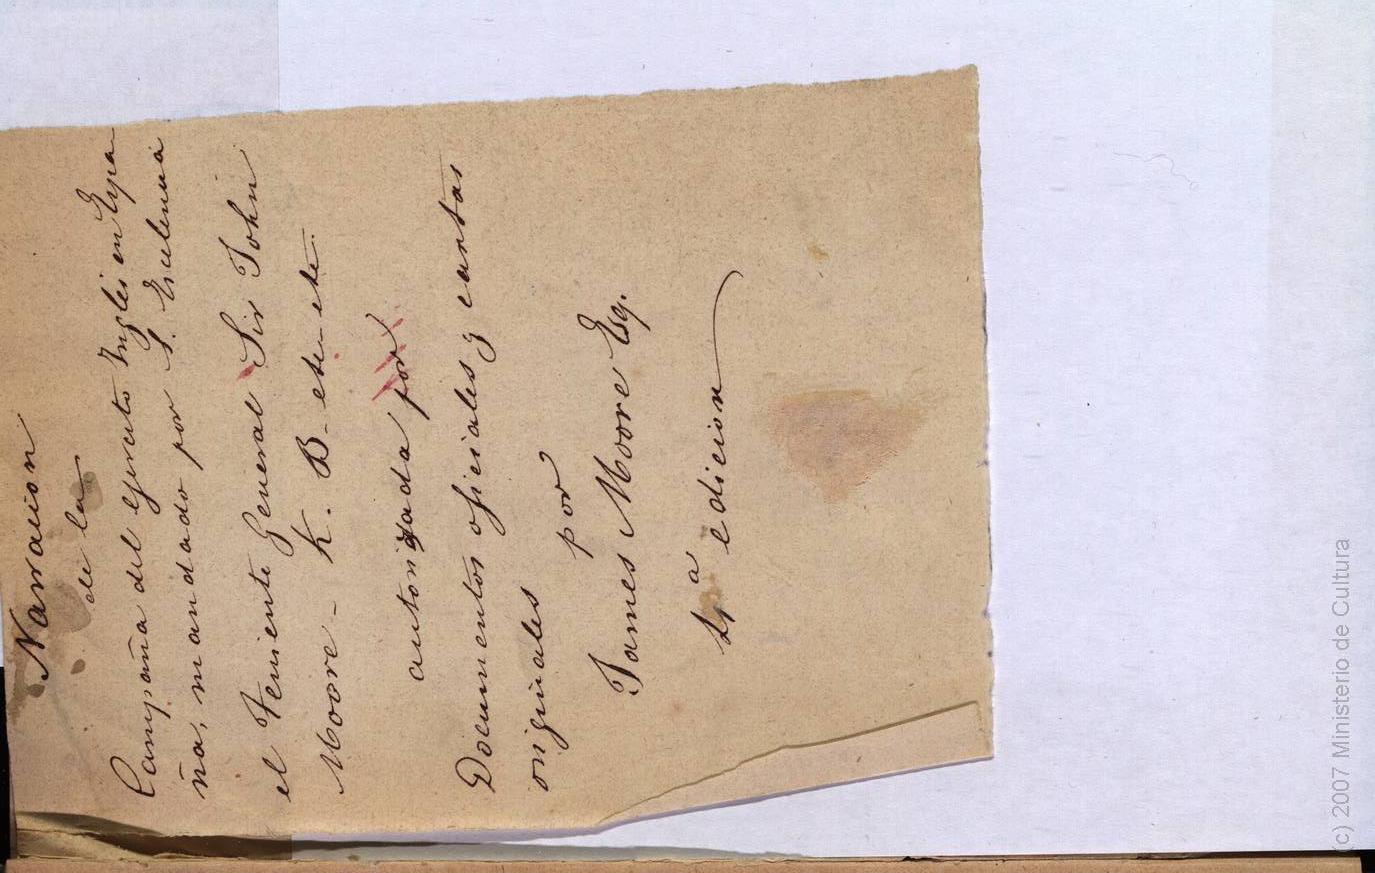 Narracion
de la
Campaña del ejercito Ingles en Espa
ña, mandado por S. Escelencia
el Teniente General Sir John
Moore - K. B. etc etc.
autorizada por
Documentos oficiales y cartas
originales por
James Moore Esq.
4ª edicion
(c) 2007 Ministerio de Cultura